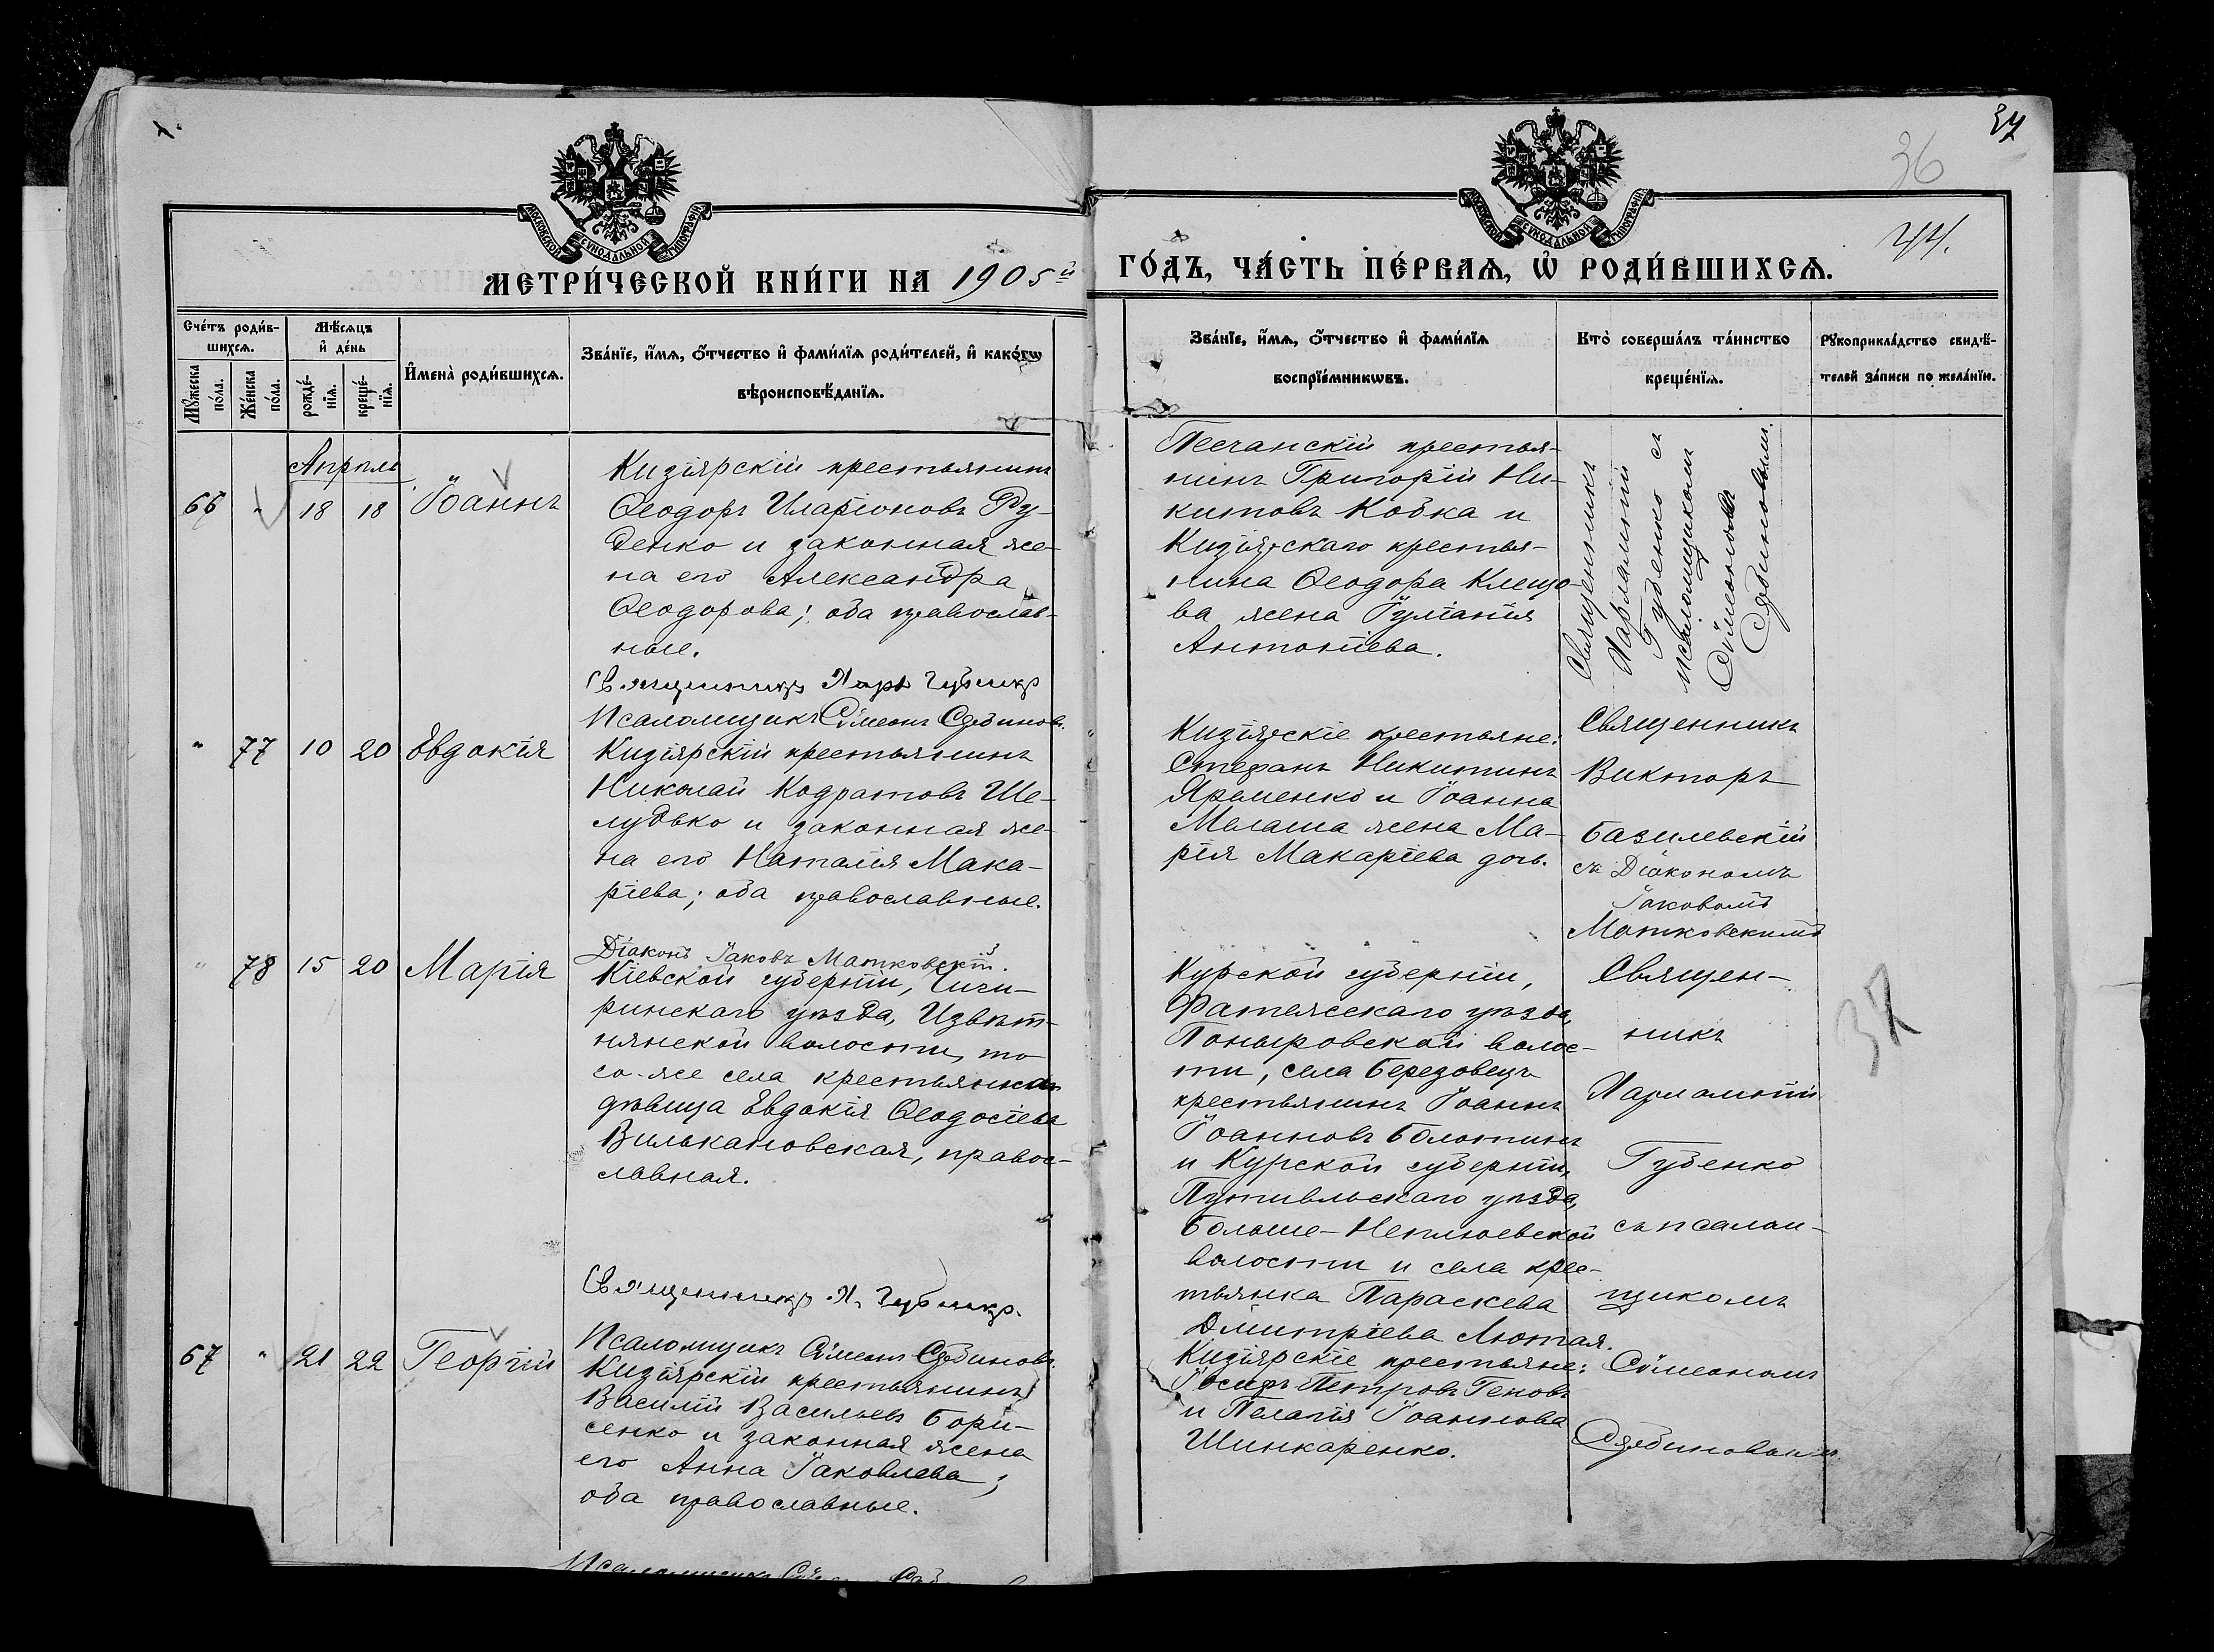 37
36
44.
МОСКОВСКОЙ СѴНОДАЛЬНОЙ ТИПОГРАФІИ
МОСКОВСКОЙ СѴНОДАЛЬНОЙ ТИПОГРАФІИ
МЕТРИ́ЧЕСКОЙ КНИ́ГИ НА 1905й
ГО́ДЪ, ЧА́СТЬ ПЕ́РВАѦ, Ѡ҆ РОДИ́ВШИХСѦ.
Сче́тъ роди́в-
шихсѧ.
Мꙋ́жеска по́ла.
Же́нска по́ла.
Мѣ́сѧцъ
и҆ де́нь
рожде́-
нїѧ.
креще́-
нїѧ.
И҆мена̀ роди́вшихсѧ.
Зва́нїе, и҆́мѧ, ѻ҆́тчество и҆ фами́лїѧ роди́телей, и҆ како́гѡ
вѣроисповѣ́данїѧ.
Зва́нїе, и҆́мѧ, ѻ҆́тчество и҆ фами́лїѧ
воспрїе́мникѡвъ.
Кто̀ соверша́лъ та́инство
креще́нїѧ.
Рꙋкоприкла́дство свидѣ́-
телей за́писи по жела́нїю.
Апрѣль
66 " 18 18 Іоаннъ
Кизіярскій крестьянинъ
Ѳеодоръ Иларіоновъ Ру-
денко и законная же-
на его Александра
Ѳеодорова; оба православ-
ные.
Священникъ Парѳ Губенко
Псаломщикъ Сѵмеонъ Сербиновъ.
Песчанскій крестья-
нинъ Григорій Ни-
китовъ Кобка и
Кизіярскаго крестья-
нина Ѳеодора Клещо-
ва жена Іуліанія
Антоніева.
Священникъ
Парѳамтій
Губенко съ
псаломщикомъ
Сѵмеономъ
Сербиновымъ.
" 77 10 20 Евдокія
Кизіярскій крестьянинъ
Николай Кодратовъ Ше-
лудько и законная же-
на его Наталія Мака-
ріева; оба православные.
Діаконъ Іаковъ Матковскій.
Кизіярскіе крестьяне:
Стефанъ Никитинъ
Яременко и Іоанна
Малаша жена Ма-
рія Макаріева дочь.
Священникъ
Викторъ
Базилевскій
съ Діакономъ
Іаковомъ
Матковскимъ
" 78 15 20 Марія
Кіевской губерніи, Чиги-
ринскаго уѣзда,
волости, то-
го-же села крестьянская
дѣвица Евдокія Ѳеодосіева
Вилькановская, правос-
лавная.
Священникъ П. Губенко.
Псаломщикъ Сѵмеонъ Сербиновъ.
Курской губерніи,
Фатежскаго уѣзда,
Поныровской волос-
ти, села Березовецъ
крестьянинъ Іоаннъ
Іоанновъ Болотинъ
и Курской губерніи,
Путивльскаго уѣзда,
Больше-Неплюевской
волости и села крес-
тьянка Параскева
Дмитріева Лютая.
Священ-
никъ
Губенко
съ псалом-
щикомъ
Сѵмеономъ
Сербиновымъ
37
67 " 21 22 Георгій
Кизіярскій крестьянинъ
Василій Васильевъ Бори-
сенко и законная жена
его Анна Іаковлева;
оба православные.
Кизіярскіе крестьяне:
Іосифъ Петровъ Геновъ
и Пелагія Іоаннова
Шинкаренко.